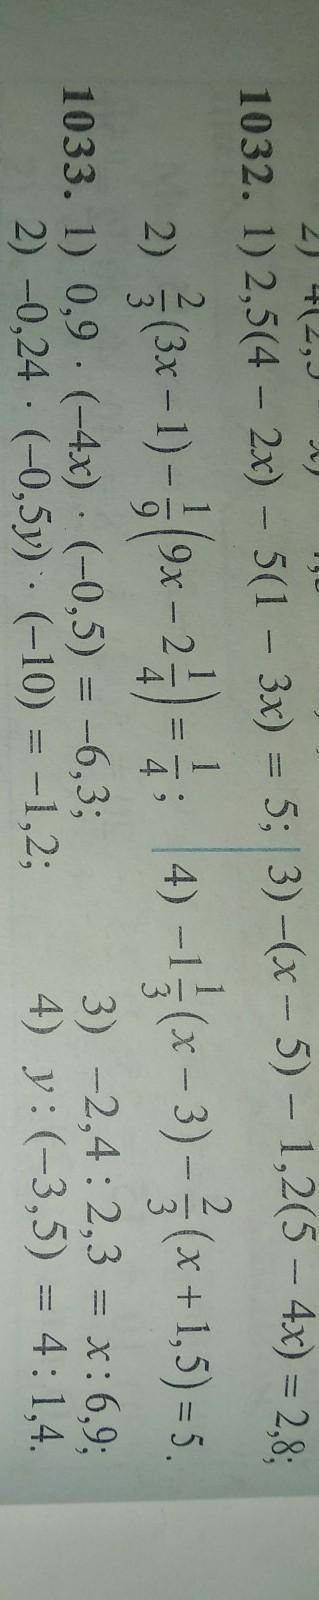 1032. 1) 2,5(4 – 2x) – 5(1 – 3x) = 5; 3) –(x – 5) – 1,2(5 – 4x) = 2,8;
2) 2/3(3x – 1) – 1/9(9x – 2 1/4) = 1/4; 4) –1 1/3(x – 3) – 2/3(x + 1,5) = 5.
1033. 1) 0,9 · (–4x) · (–0,5) = –6,3; 3) –2,4 : 2,3 = x : 6,9;
2) –0,24 · (–0,5y) · (–10) = –1,2; 4) y : (–3,5) = 4 : 1,4.